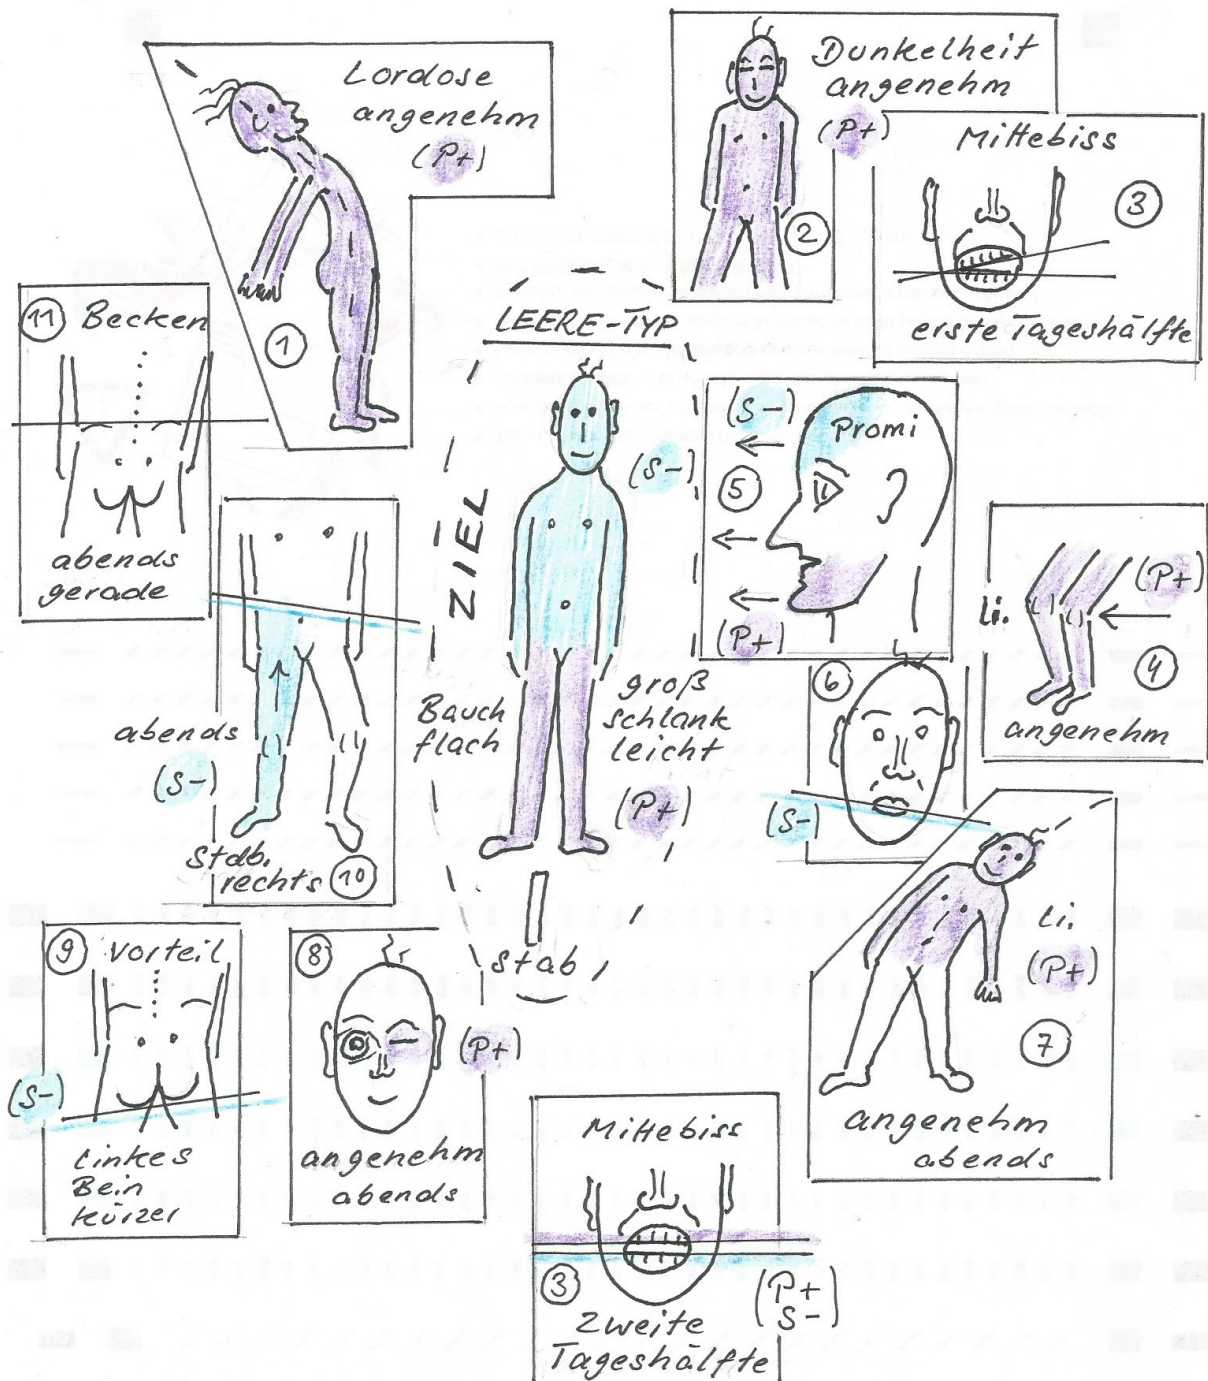 Lordose
angenehm
(P+)
1
Dunkelheit
angenehm
(P+)
2
Mittebiss
3
erste Tageshälfte
11 Becken
abends
gerade
LEERE-TYP
ZIEL
(S-)
Bauch
flach
groß
schlank
leicht
(P+)
Stab
(S-)
Promi
5
(P+)
Li.
(P+)
4
angenehm
6
(S-)
Li.
(P+)
7
angenehm
abends
abends
(S-)
Stdb.
rechts 10
9 Vorteil
(S-)
Linkes
Bein
kürzer
8
(P+)
angenehm
abends
Mittebiss
3
(P+
S-)
Zweite
Tageshälfte